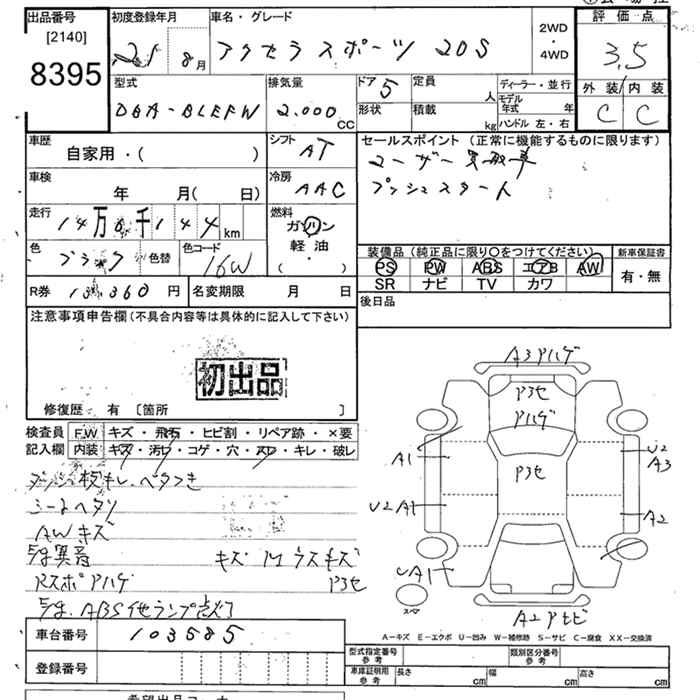 出品番号 初度登録年月 車名・グレード 2WD 評価点
[2140]
8395
21 8月 アクセラスポーツ 20S ・ 4WD 3.5
型式 排気量 ドア 5 定員 人 ディーラー・並行 外装 内装
DBA-BLEFW 2.000 CC 形状 積載 kg モデル年式 年 C C
ハンドル 左・右
車歴 シフト AT セールスポイント (正常に機能するものに限ります)
自家用・( ) ユーザー買取車
車検 年 月( 日) 冷房 AAC プッシュスタート
走行 14万0千144km 燃料 ガソリン
軽油
・( )
色 ブラック 色替 色コード 16W
装備品(純正品に限り○をつけてください) 新車保証書
PS PW ABS エアB AW 有・無
SR ナビ TV カワ
R券 13360円 名変期限 月 日 後日品
注意事項申告欄(不具合内容等は具体的に記入して下さい)
初出品
修復歴 有 [箇所 ]
検査員 F.W キズ・飛石・ヒビ割・リペア跡・×要
記入欄 内装 キズ・汚れ・コゲ・穴・スレ・キレ・破レ
シートヘタリ
AWキズ
異音 キズ
RスポPハゲ P3セ
ABS他ランプ点灯
A3 Pハゲ
P3セ
Pハゲ
P3セ
A1
U2
A3
U2 A1
A2
UA1
スペア
A2 P サビ
A-キズ E-エクボ U-凹み W-補修跡 S-サビ C-腐食 XX-交換済
車台番号 103585
型式指定番号 参考 類別区分番号 参考
登録番号
車庫証明用 参考 長さ cm 幅 cm 高さ cm
希望出品コーナー